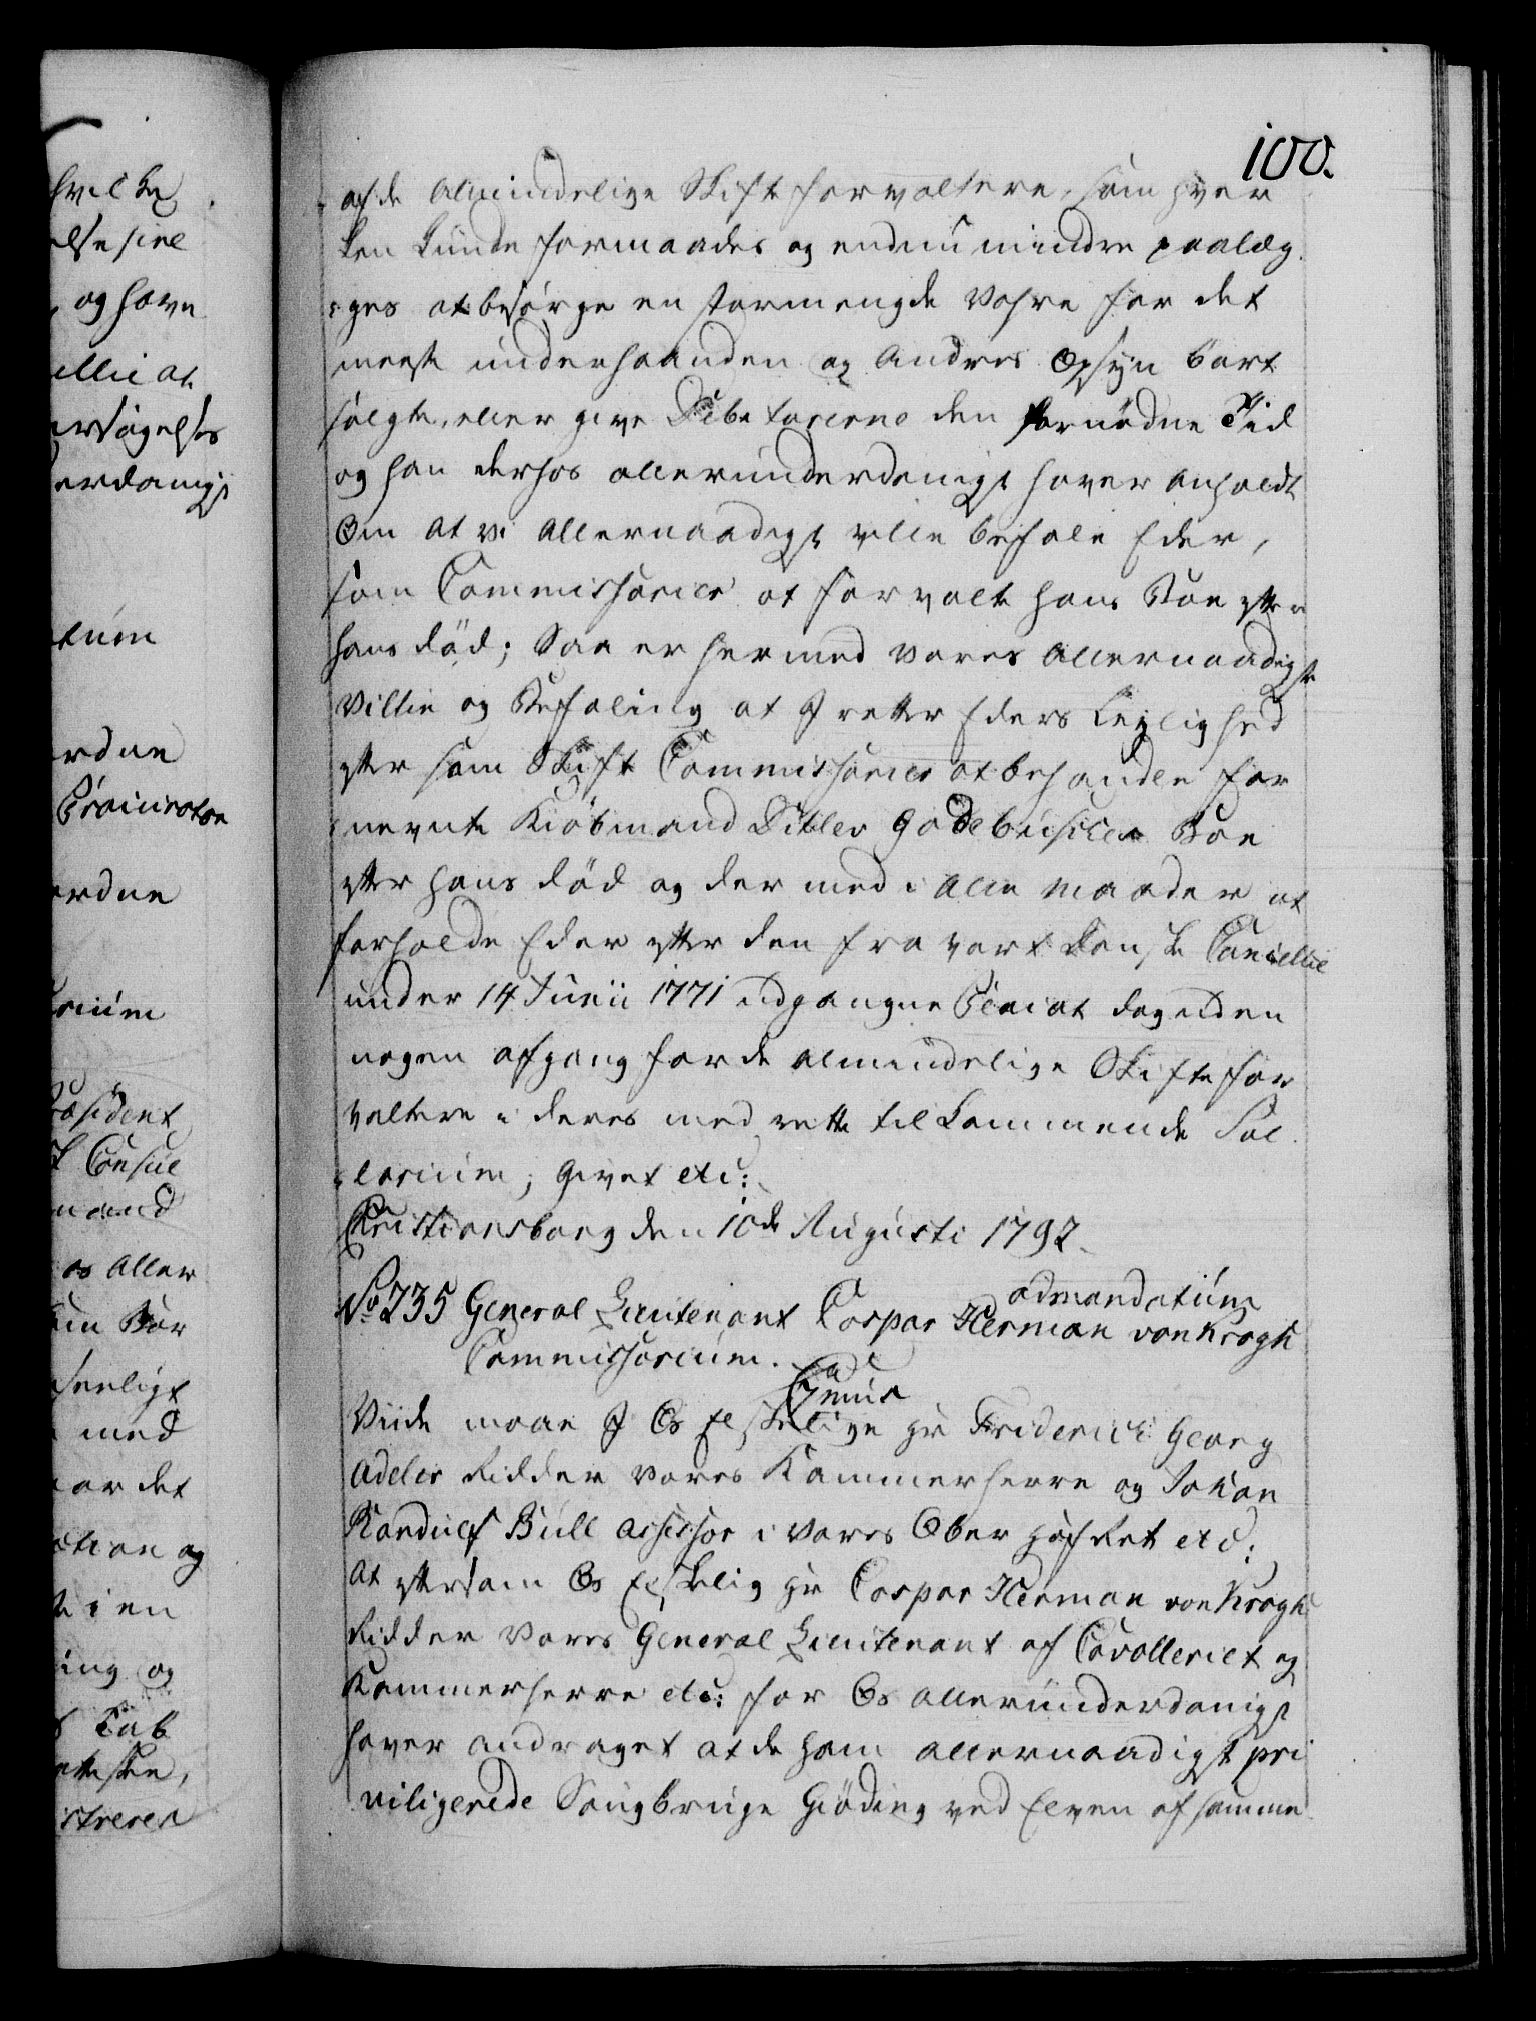 100.
af de almindelige Skifteforvaltere, som hver
ken kunde formaades og endnu mindre paalæg
ges at besørge en stor mengde Vahre for det
meste underhaanden og Andres Opsyn bort
solgte, eller give Debitorerne den fornødne Tid
og han derhos allerunderdanigst haver anholdt
Om at vi Allernaadigst ville befale Eder,
som Commissarier at forvalte hans Boe efter
hans død; Saa er hermed Vores Allernaadigste
Villie og Befaling at I retter Eders Leylighed
efter som Skifte Commissarier at behandle for
nevnte Kiøbmand Ditlev Godebusches Boe
efter hans død og der med i alle Maader at
forholde Eder efter den fra vort Danske Cancellie
under 14 Junii 1771 udgangne Placat dog uden
nogen afgang for de almindelige Skiftefor
valtere i deres med rette tilkommende Sal
larium; Givet etc:
Christiansborg den 10de Augusti 1792.
No 235 General Lieutenant Caspar Herman von Krogh ad mandatum
Commissorium.
C 7mus
Viide maae I Os elskelige Hr Friderich Georg
Adeler Ridder Vores Kammerherre og Johan
Randulf Bull Assessor i Vores Ober Hof Ret etc:
At eftersom Os Elskelig Hr Caspar Herman von Krogh
Ridder Vores General Lieutenant af Cavalleriet og
Kammerherre etc: for Os allerunderdanigst
haver andraget at de ham allernaadigst pri
viligerede Saugbruge Giøding ved Elven af samme